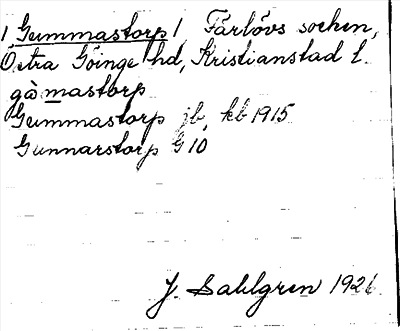 1 Gummastorp 1, Färlövs socken,
Östra Göinge hd, Kristianstad l.
gỳmastorp
Gummastorp jb, kb 1915
Gunnarstorp G 10
J. Dahlgren 1926